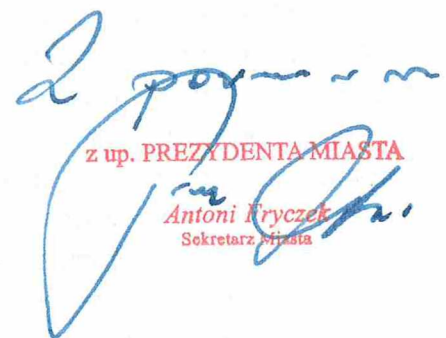 Z
z up. PREZYDENTA MIASTA
Antoni Fryczek
Sekretarz Miasta